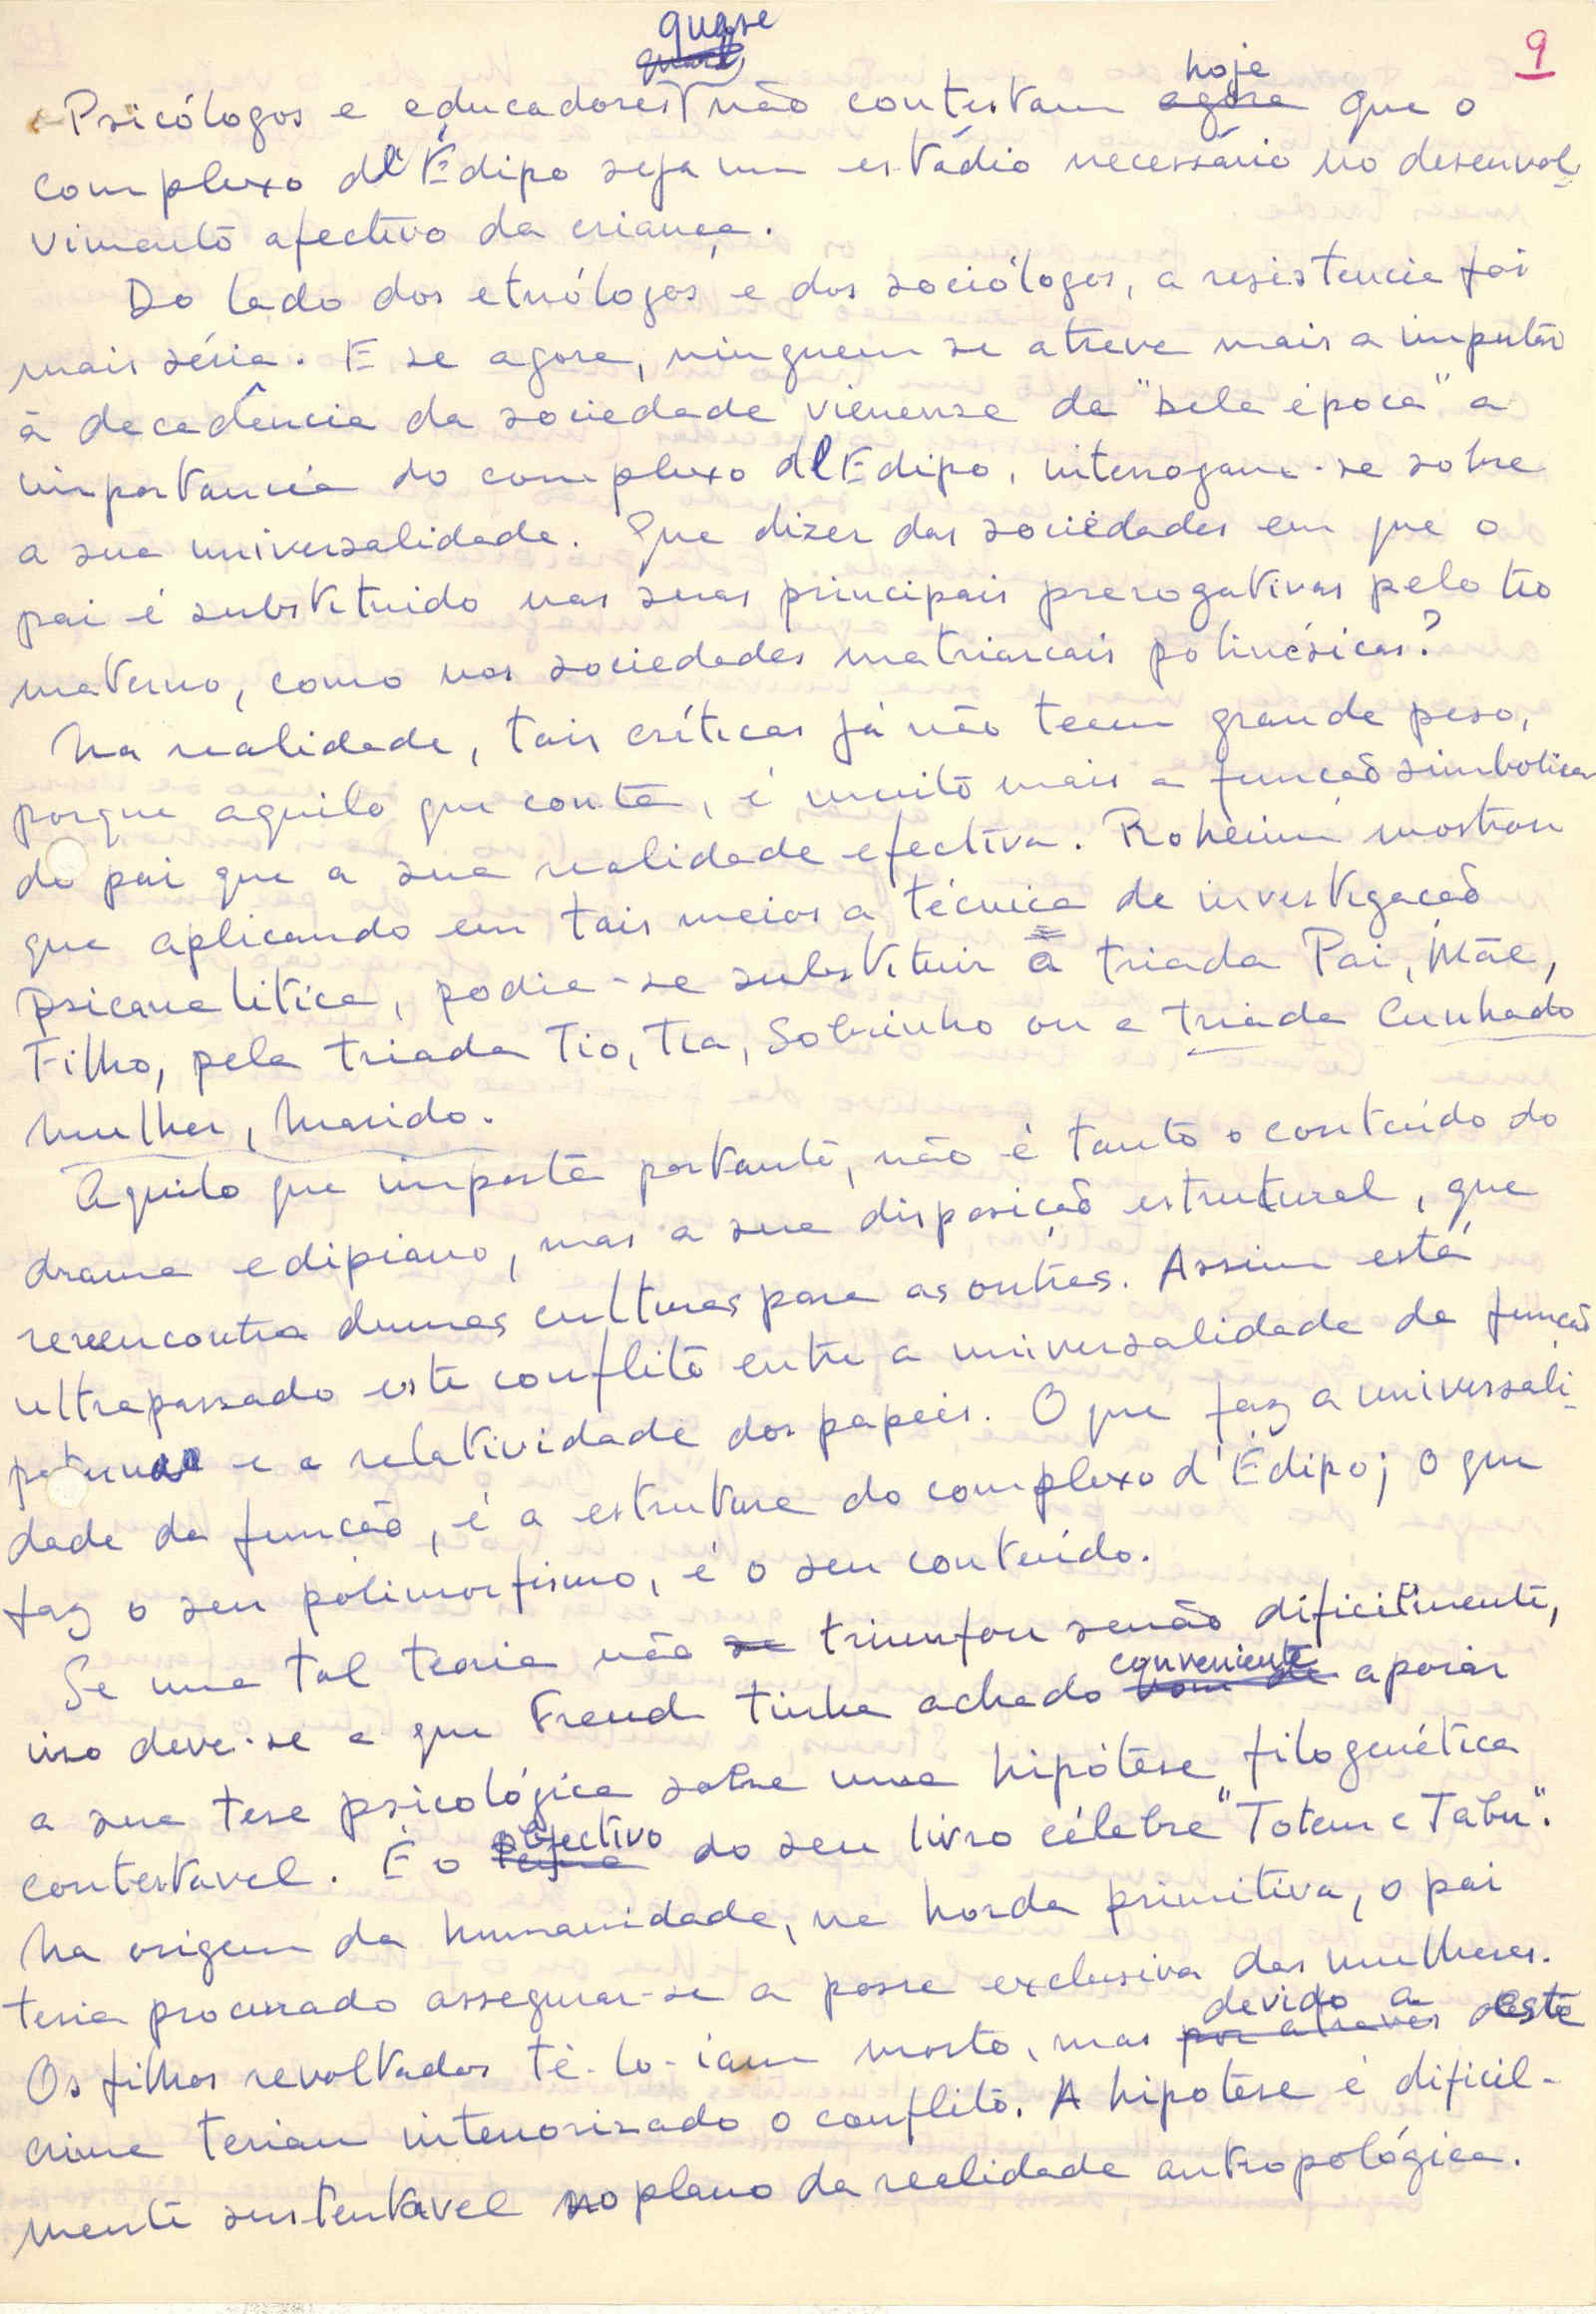 9
quase
Psicólogos e educadores não contestam hoje que o
complexo d'Édipo seja um estádio necessário no desenvol-
vimento afectivo da criança.
Do lado dos etnólogos e dos sociólogos, a resistencia foi
mais séria. E se agora, ninguem se atreve mais a imputar
à decadência da sociedade vienense da "bela época" a
importancia do complexo d'Edipo, interrogam-se sobre
a sua universalidade. Que dizer das sociedades em que o
pai é substituido nas suas principais prerogativas pelo tio
materno, como nas sociedades matriarcais polinésicas?
Na realidade, tais críticas já não teem grande peso,
porque aquilo que conta, é muito mais a função simbolica
do pai que a sua realidade efectiva. Roheim mostrou
que aplicando em tais meios a técnica de investigação
psicanalitica, podia-se substituir a triada Pai, Mãe,
Filho, pela triada Tio, Tia, Sobrinho ou a triada Cunhado
Mulher, Marido.
Aquilo que importa portanto, não é tanto o conteúdo do
drama edipiano, mas a sua disposição estrutural, que
reencontra dumas culturas para as outras. Assim está
ultrapassado este conflito entre a universalidade da função
paterna e a relatividade dos papeis. O que faz a universali-
dade da função, é a estrutura do complexo d'Édipo; o que
faz o seu polimorfismo, é o seu conteúdo.
Se uma tal teoria não se triunfou senão dificilmente,
isso deve-se a que Freud tinha achado conveniente apoiar
a sua tese psicológica sobre uma hipótese filogenética
contestavel. É o objectivo do seu livro célebre "Totem e Tabu".
Na origem da humanidade, na horda primitiva, o pai
teria procurado assegurar-se a posse exclusiva das mulheres.
Os filhos revoltados tê-lo-iam morto, mas devido a este
por através
crime teriam interiorizado o conflito. A hipotese é dificil-
mente sustentavel no plano da realidade antropológica.